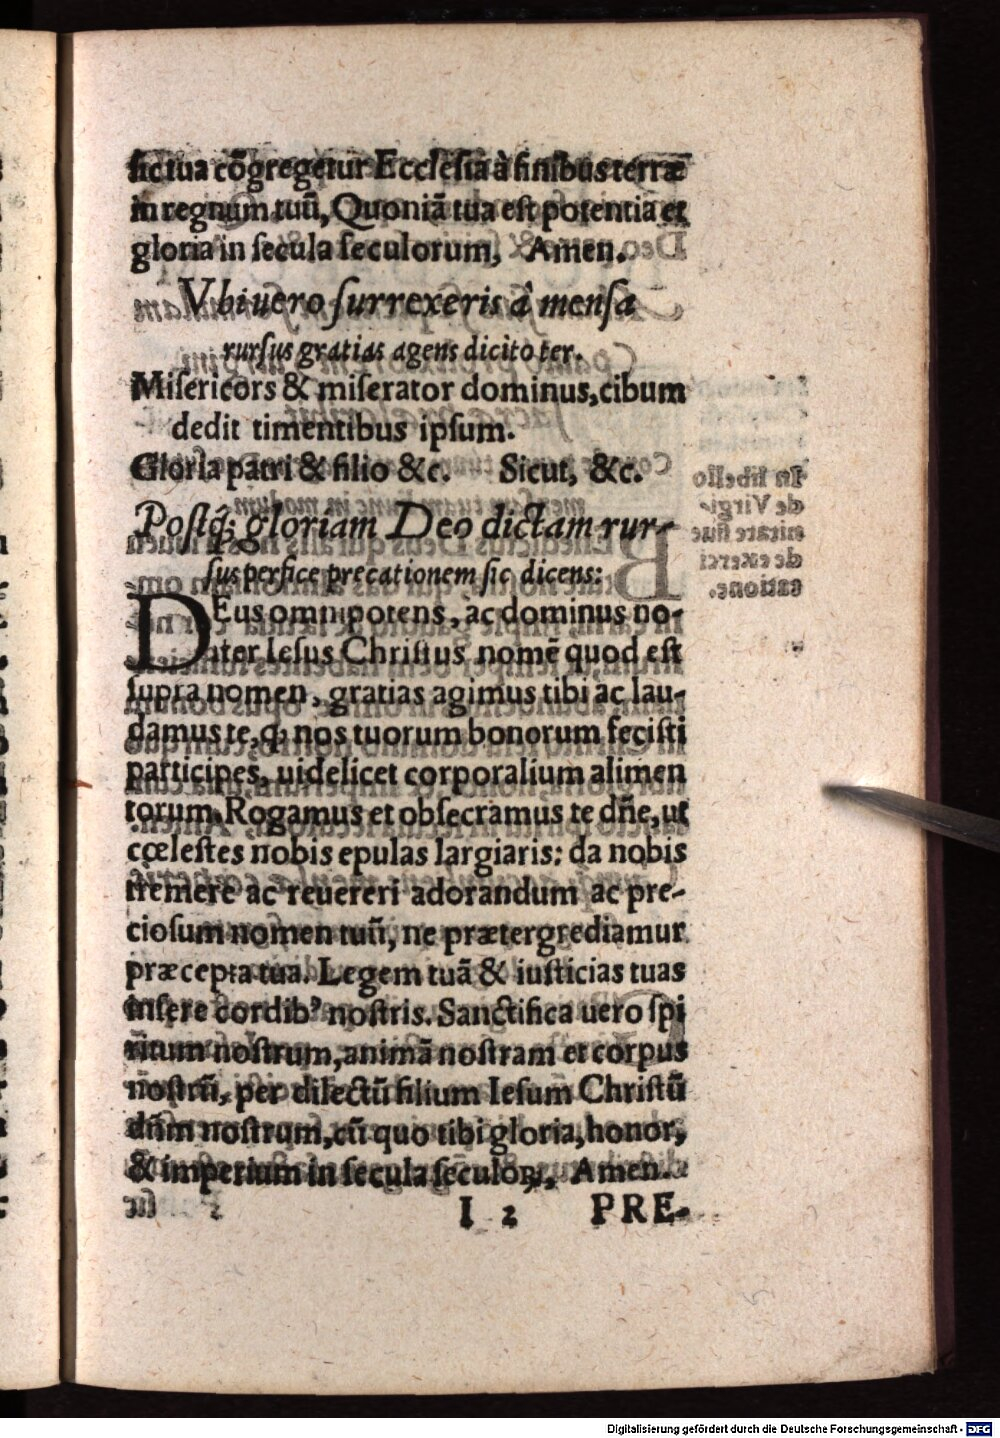 sic tua cõgregetur Ecclesia à finibus terræ
in regnum tuũ, Quoniã tua est potentia et
gloria in secula seculorum, Amen.
Vbi uero surrexeris à mensa
rursus gratias agens dicito ter.
Misericors & miserator dominus, cibum
dedit timentibus ipsum.
Gloria patri & filio &c. Sicut, &c.
Postq̃; gloriam Deo dictam rur-
sus perfice precationem sic dicens:
DEus omnipotens, ac dominus no-
ster Iesus Christus nomẽ quod est
supra nomen, gratias agimus tibi ac lau-
damus te, q; nos tuorum bonorum fecisti
participes, uidelicet corporalium alimen
torum. Rogamus et obsecramus te dñe, ut
cœlestes nobis epulas largiaris: da nobis
tremere ac reuereri adorandum ac pre-
ciosum nomen tuũ, ne prætergrediamur
præcepta tua. Legem tuã & iusticias tuas
insere cordibꝰ nostris. Sanctifica uero spi
ritum nostrum, animã nostram et corpus
nostrũ, per dilectũ filium Iesum Christũ
dñm nostrum, cũ quo tibi gloria, honor,
& imperium in secula seculoꝝ, Amen.
I 2 PRE-
Digitalisierung gefördert durch die Deutsche Forschungsgemeinschaft - DFG